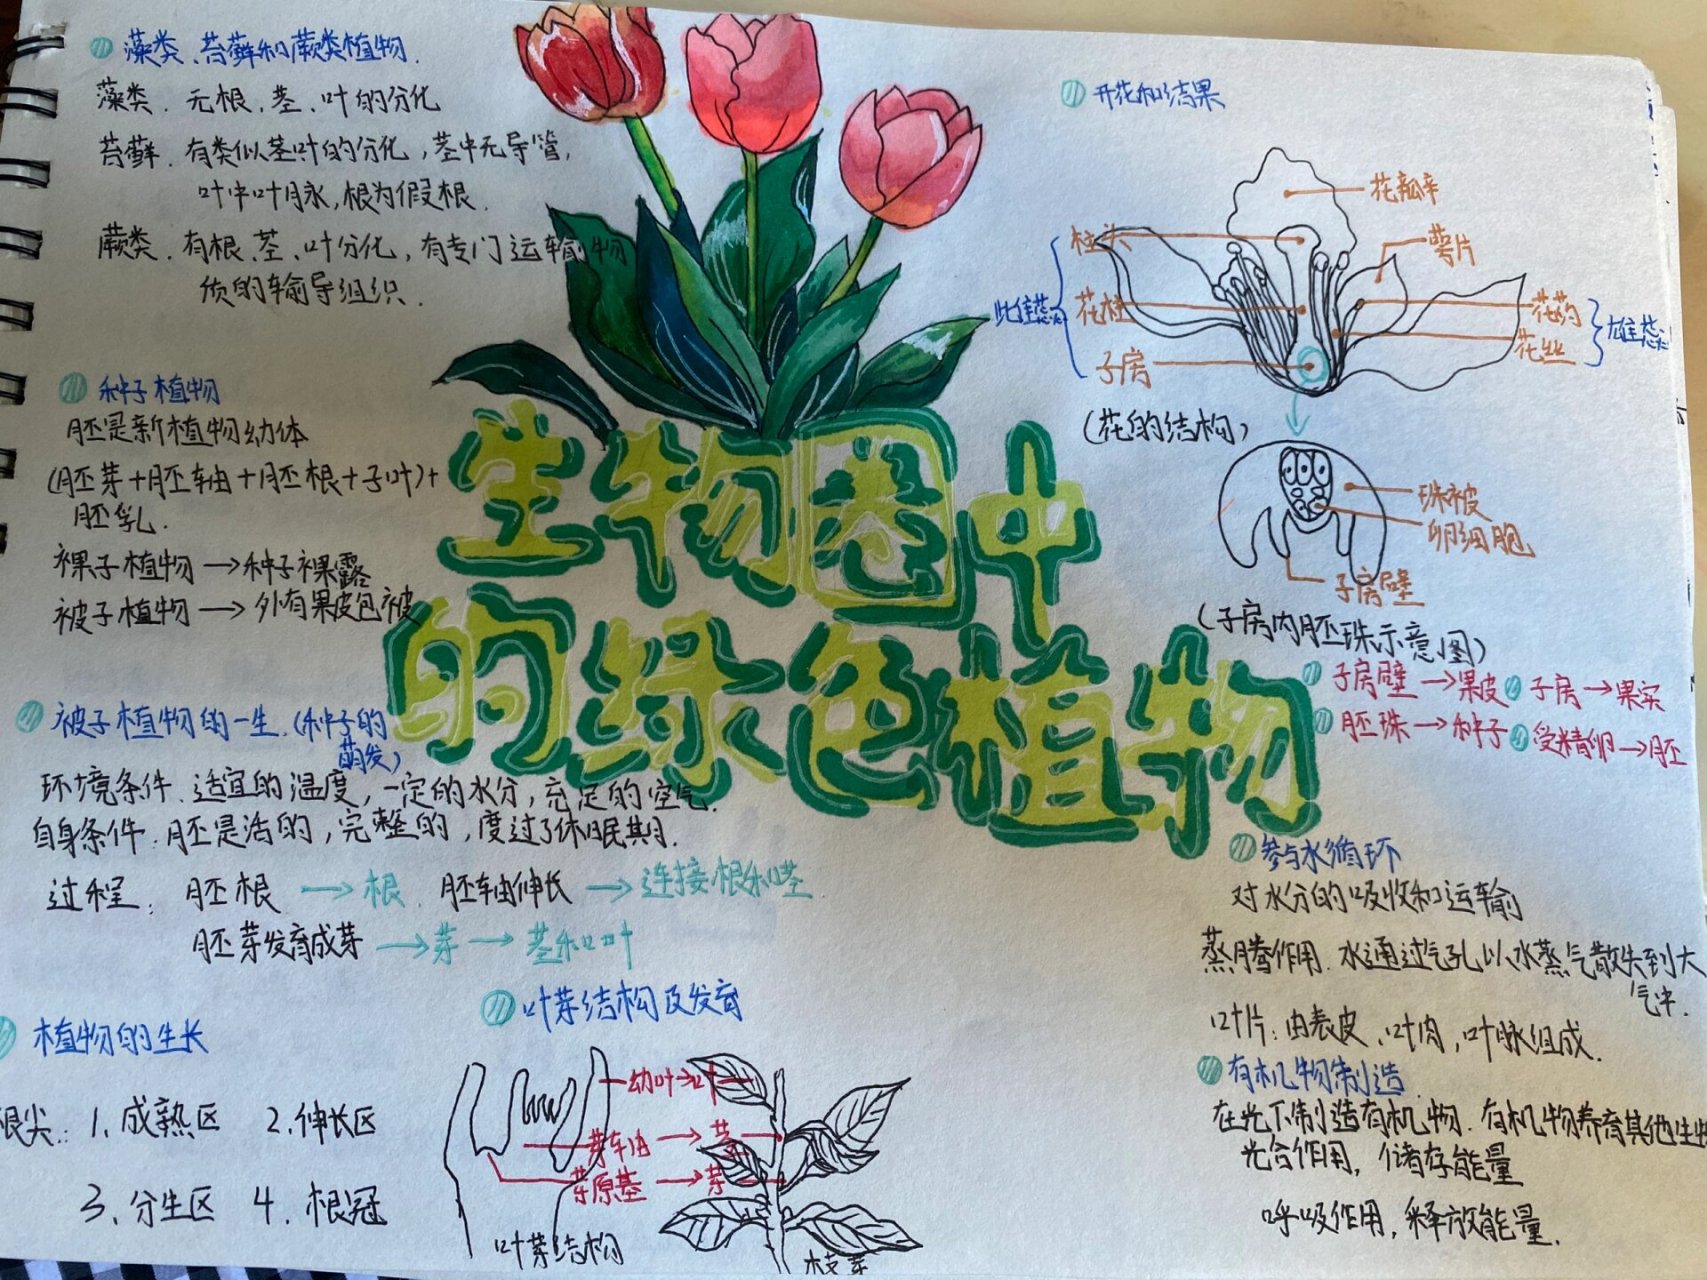 藻类、苔藓和蕨类植物.
藻类、无根、茎、叶的分化
苔藓、有类似茎叶的分化,茎中无导管,
叶中叶脉,根为假根.
蕨类、有根、茎、叶分化,有专门运输物
质的输导组织.
种子植物
胚是新植物幼体
(胚芽+胚轴+胚根+子叶)+
胚乳.
裸子植物→种子裸露
被子植物→外有果皮包被
生物圈中
的绿色植物
被子植物的一生.(种子的
萌发)
环境条件、适宜的温度,一定的水分,充足的空气.
自身条件:胚是活的,完整的,度过了休眠期.
过程: 胚根→根 胚轴伸长→连接根和茎
胚芽发育成芽→芽→茎和叶
植物的生长
根尖: 1、成熟区 2、伸长区
3、分生区 4、根冠
叶芽结构及发育
幼叶→叶
芽轴→茎
芽原基→芽
叶芽结构
枝芽
开花和结果
花瓣
柱头
萼片
花柱
花药
雌蕊
雄蕊
花丝
子房
(花的结构)
珠被
卵细胞
子房壁
(子房内胚珠示意图)
子房壁→果皮 子房→果实
胚珠→种子 受精卵→胚
参与水循环
对水分的吸收和运输
蒸腾作用、水通过气孔以水蒸气散失到大
气中.
叶片:由表皮、叶肉,叶脉组成.
有机物制造
在光下制造有机物.有机物养育其他生物
光合作用,储存能量
呼吸作用,释放能量.